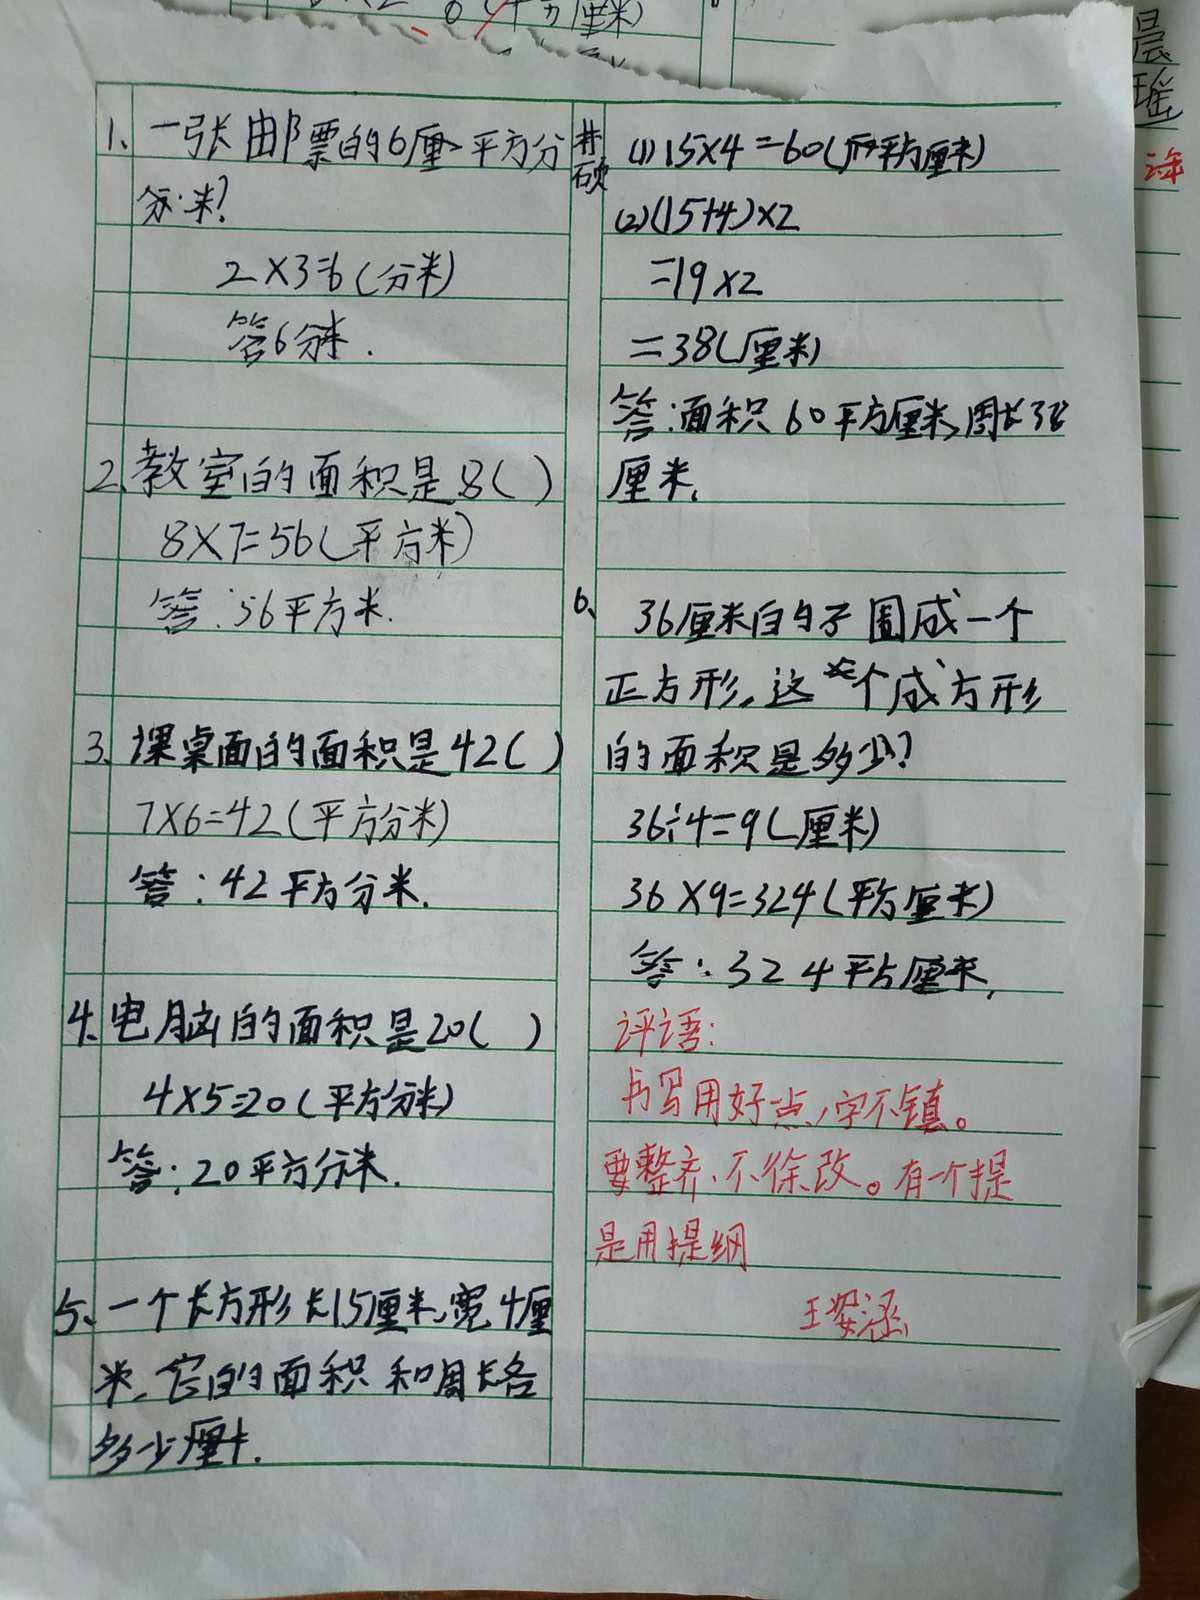 1、一张邮票的6厘 平方分
分米?
2×3=6(分米)
答6分米.
2、教室的面积是8( )
8×7=56(平方米)
答:56平方米.
3、课桌面的面积是42( )
7×6=42(平方分米)
答:42平方分米.
4、电脑的面积是20( )
4×5=20(平方分米)
答:20平方分米.
5、一个长方形长15厘米,宽4厘
米,它的面积和周长各
多少厘米.
井硕
(1)15×4=60(平方厘米)
(2)(15+4)×2
=19×2
=38(厘米)
答:面积60平方厘米,周长38
厘米.
6、36厘米的子围成一个
正方形,这个成方形
的面积是多少?
36÷4=9(厘米)
36×9=324(平方厘米)
答:324平方厘米,
评语:
书写用好点,字不镇。
要整齐、不徐改。有一个提
是用提纲
王婴涵
晨
瑶